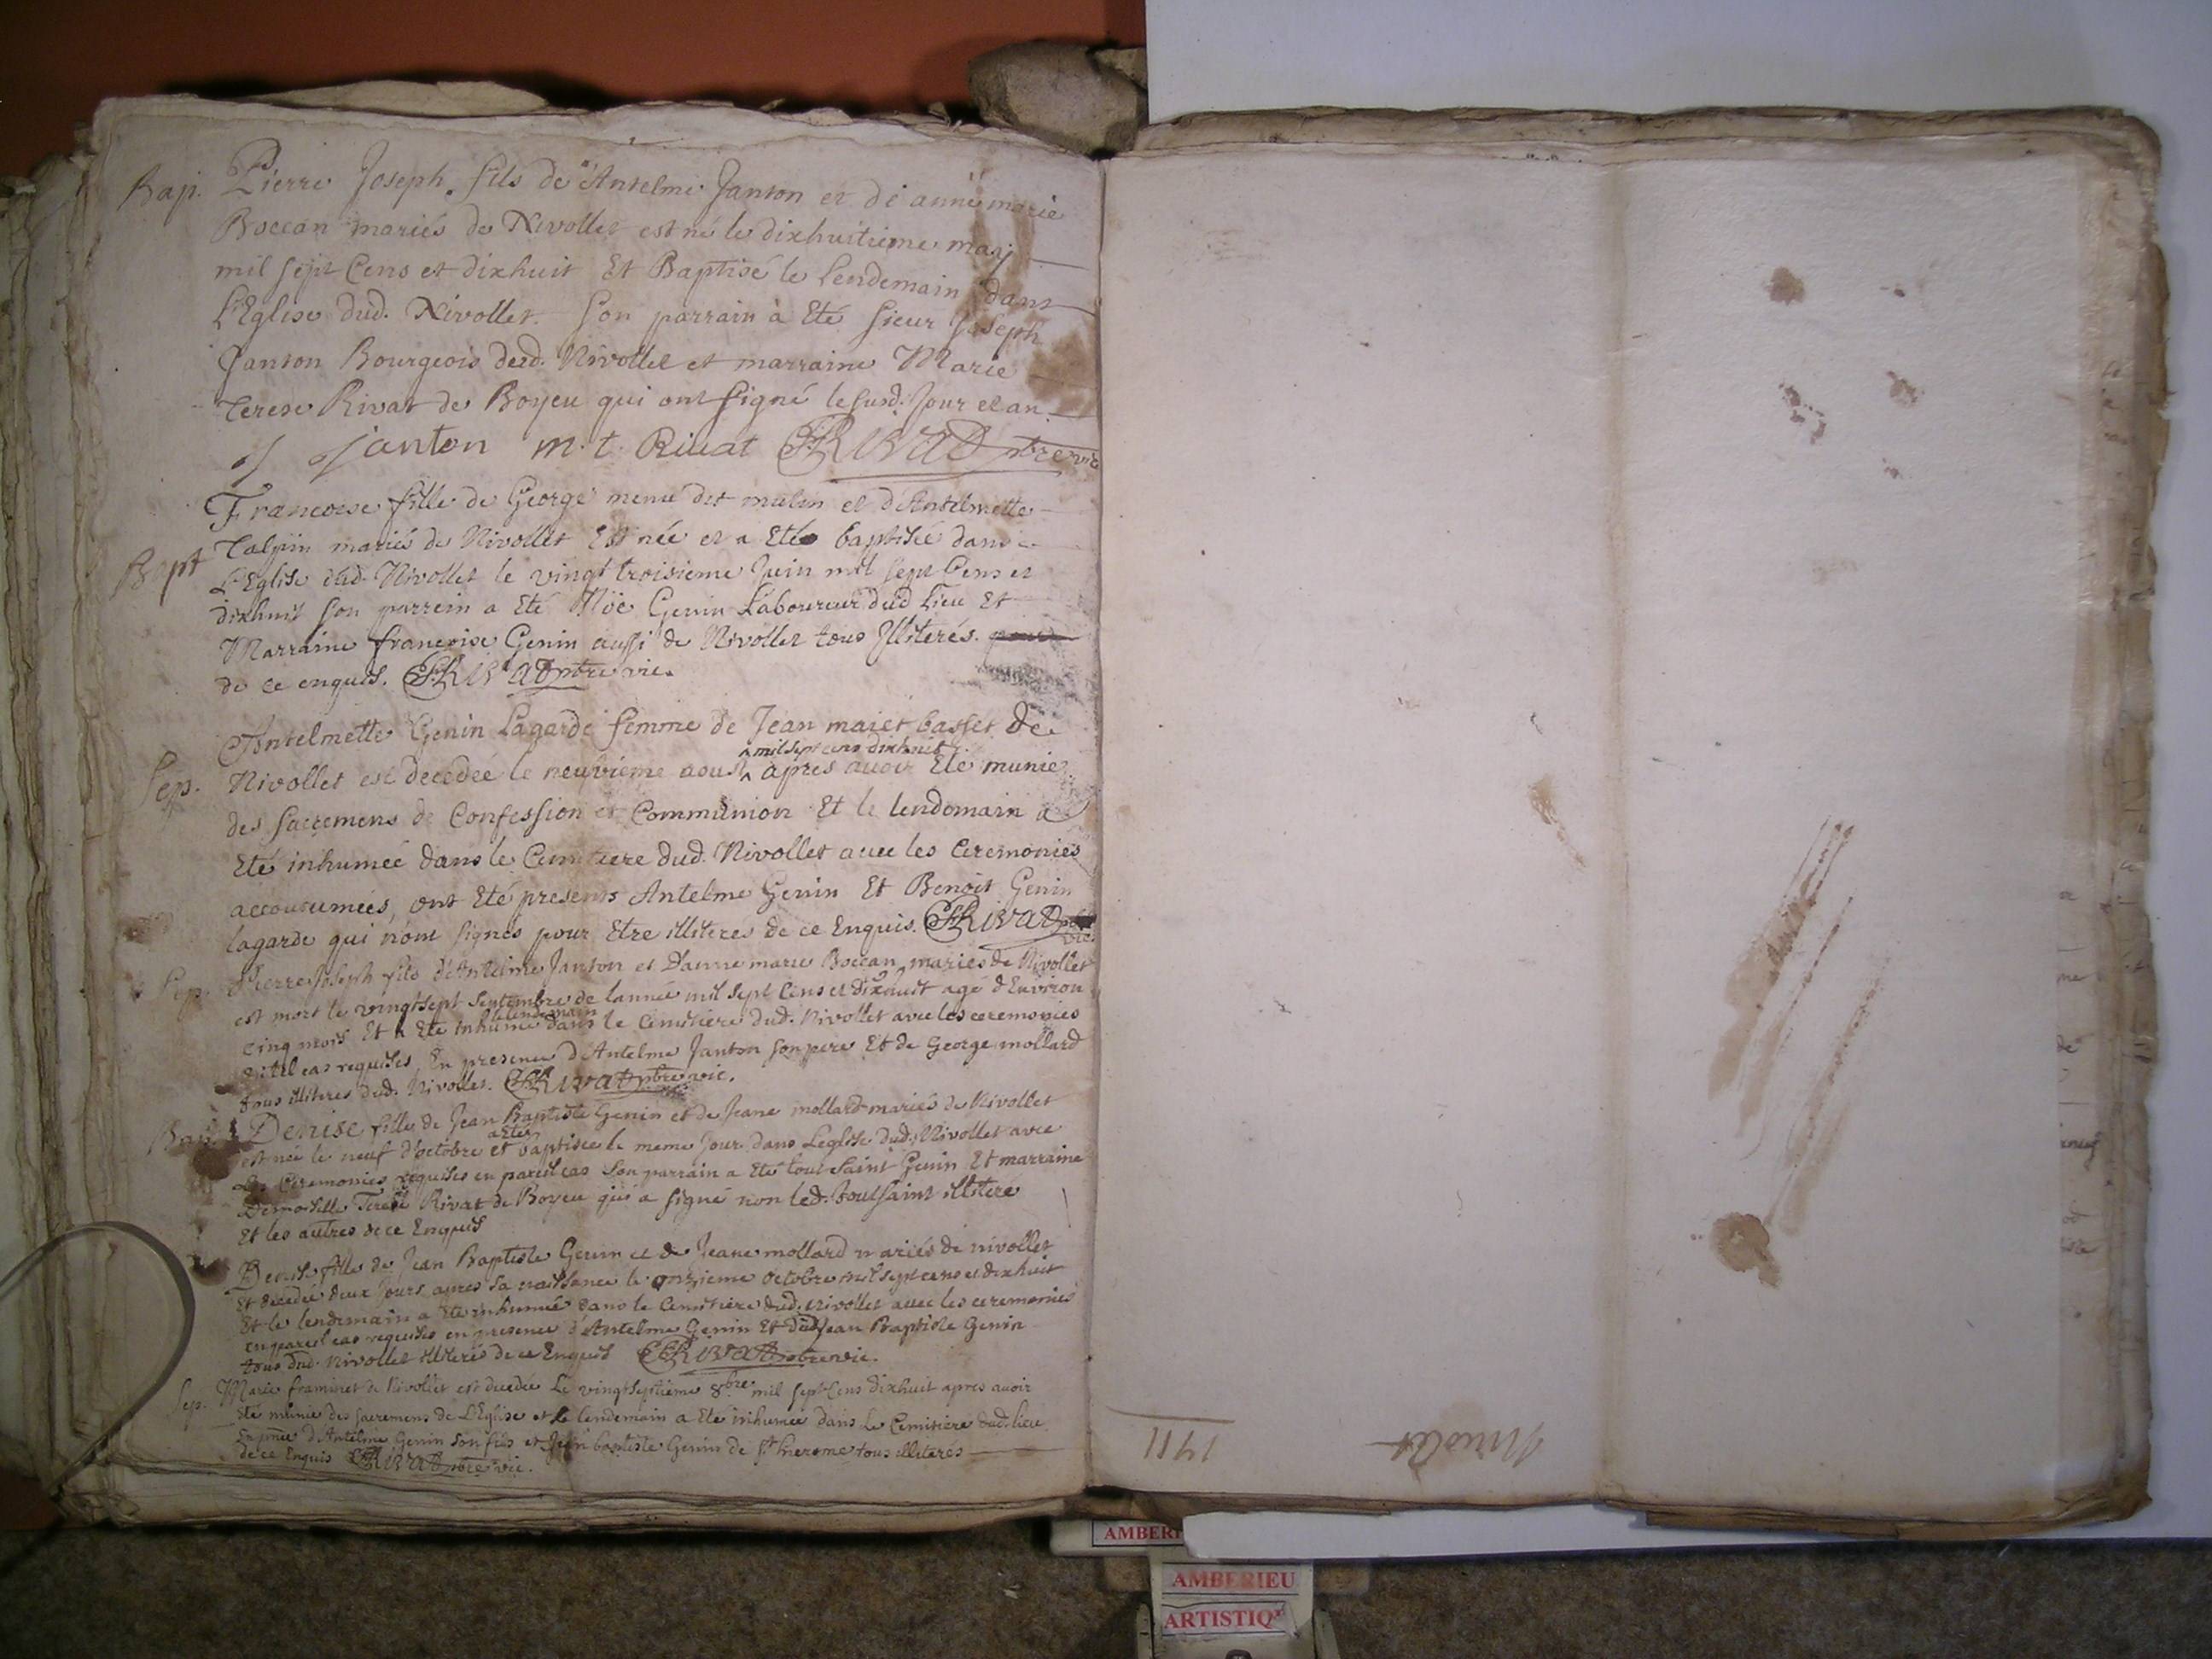 Bap. Pierre Joseph fils de Antelme Janton et de anne marie
Boccan mariés de Nivollet est né le dixhuitieme maij
mil sept Cens et dixhuit Et Baptisé le lendemain dans
L'Eglise dud. Nivollet. Son parrain à Eté sieur Joseph
Janton Bourgeois dud. Nivollet et marraine Marie
Terese Rivat de Boyeu qui ont signé le susd. Jour et an
J Janton m. t. Rivat Rivat ptre vic
Francoise fille de George menu dit mulin et d'Antelmette
Bapt Talpin mariés de Nivollet Est née et a Eté baptisée dans
L'Eglise dud. Nivollet le vingt troisieme Juin mil sept Cens et
dixhuit son parrein a Eté Noë Genin Laboureur dud Lieu Et
Marraine francoise Genin aussi de Nivollet tous Illiterés.
de ce enquis. Rivat ptre vic.
Antelmette Genin Lagarde femme de Jean maiet basset de
mil sept cens dixhuit
Sep. Nivollet est decedeé le neufvieme aoust apres avoir Eté munie
des sacremens de Confession et Communion Et le lendomain a
Eté inhumeé dans le Cimitiere dud. Nivollet avec les Ceremonies
accoutumées, ont Eté presents Antelme Genin Et Benoit Genin
lagarde qui n'ont signés pour Etre illiteres de ce Enquis. Rivat ptre
vic.
Sep. Pierre Joseph fils d'Antelme Janton et D'anne marie Boccan mariés de Nivollet
est mort le vingtsept Septembre de lannée mil sept Cens et dixhuit agé d'Environ
le lendemain
cinq mois Et a Eté inhumé dans le Cimitiere dud. Nivollet avec les ceremonies
en tel cas requises, En presence d'Antelme Janton son pere Et de George mollard
tous illiteres dud. Nivollet. Rivat ptre vic.
Bap. Denise fille de Jean Baptiste Genin et de Jeane mollard mariés de Nivollet
a Eté
est née le neuf d'octobre et baptisée le meme Jour dans Leglise dud. Nivollet avec
les Ceremonies requises en pareil cas Son parrain a Eté tout Saint Genin Et marraine
Demoiselle Terese Rivat de Boyeu qui a signe non led. Toussaint illiteré
Et les autres de ce Enquis
Denise fille de Jean Baptiste Genin et de Jeane mollard mariés de nivollet
Et decedée deux Jours apres sa naissance le onzieme octobre mil sept cens et dixhuit
Et le lendemain a Eté inhumeé dans le Cimitiere dud. Nivollet avec les ceremonies
en pareil cas requises en presence d'Antelme Genin Et dud Jean Baptiste Genin
tous dud. Nivollet illiterés de ce Enquis Rivat ptre vic.
Sep. Marie framinet de Nivollet est decedée Le vingtseptieme 8bre mil sept Cens dixhuit apres avoir
Eté munie des sacremens de L'Eglise et le lendemain a Eté inhumeé dans le Cimitiere dud. lieu
En pnce d'Antelme Genin son fils et Jean baptiste Genin de St hierome tous illiterés
de ce Enquis Rivat ptre vic.
1711
Nivollet
AMBERI
AMBERIEU
ARTISTIQ